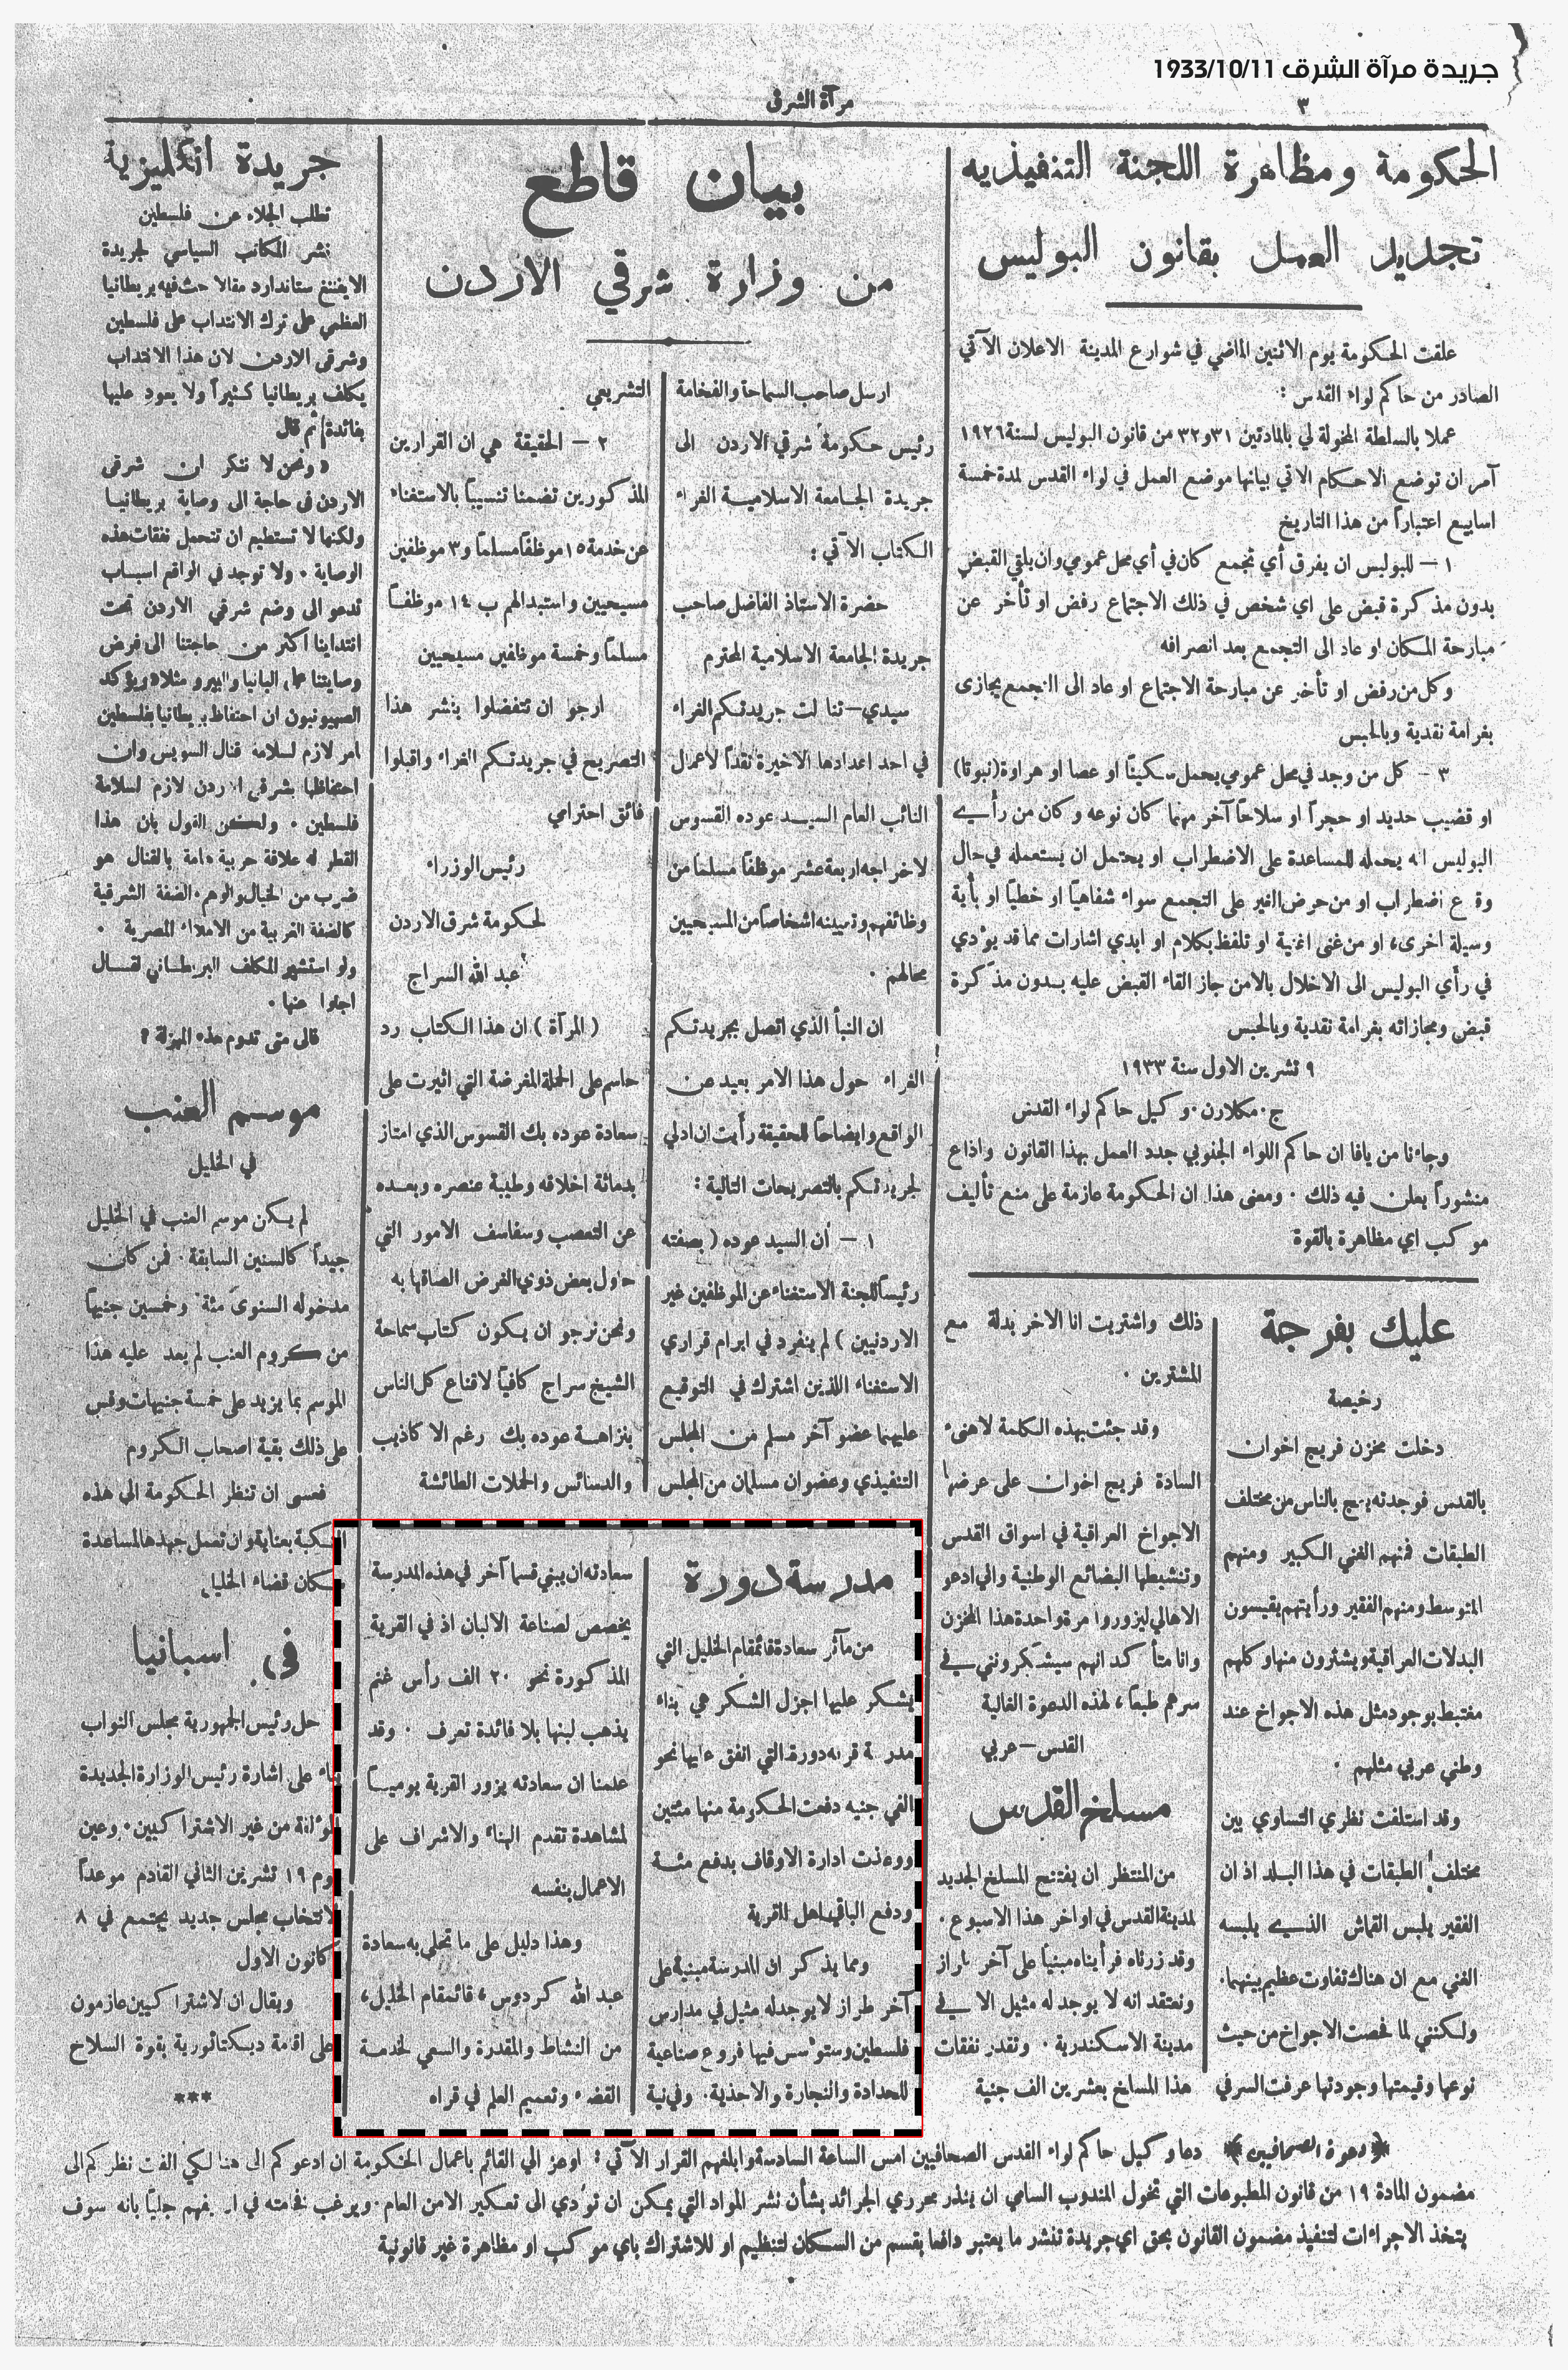 جريدة مرآة الشرق 1933/10/11
٣
مرآة الشرق
الحكومة ومظاهرة اللجنة التنفيذيه
تجديد العمل بقانون البوليس
علقت الحكومة يوم الاثنين الماضي في شوارع المدينة الاعلان الآتي
الصادر من حاكم لواء القدس :
عملا بالسلطة المخولة لي بالمادتين ٣١و٣٢ من قانون البوليس لسنة ١٩٢٦
آمر ان توضع الاحكام الاتي بيانها موضع العمل في لواء القدس لمدة خمسة
اسابيع اعتباراً من هذا التاريخ
١ – للبوليس ان يفرق أي تجمع كان في أي محل عمومي وان يلقي القبض
بدون مذكرة قبض على اي شخص في ذلك الاجتماع رفض او تأخر عن
مبارحة المكان او عاد الى التجمع بعد انصرافه
وكل من رفض او تأخر عن مبارحة الاجتماع او عاد الى التجمع يجازى
بغرامة نقدية وبالحبس
٣ – كل من وجد في محل عمومي يحمل سكيناً او عصا او هراوة (نبوتا)
او قضيب حديد او حجراً او سلاحاً آخر مهما كان نوعه وكان من رأي
البوليس انه يحمله للمساعدة على الاضطراب او يحتمل ان يستعمله في حال
وقوع اضطراب او من حرض الغير على التجمع سواء شفاهياً او خطياً او بأية
وسيلة اخرى، او من غنى اغنية او تلفظ بكلام او ابدي اشارات مما قد يؤدي
في رأي البوليس الى الاخلال بالامن جاز القاء القبض عليه بدون مذكرة
قبض ومجازاته بغرامة نقدية وبالحبس
٩ تشرين الاول سنة ١٩٣٣
ج. مكلارن. وكيل حاكم لواء القدس
وجاءنا من يافا ان حاكم اللواء الجنوبي جدد العمل بهذا القانون واذاع
منشوراً يعلن فيه ذلك . ومعنى هذا ان الحكومة عازمة على منع تأليف
موكب اي مظاهرة بالقوة
عليك بفرجة
رخيصة
دخلت مخزن فريج اخوان
بالقدس فوجدته يعج بالناس من مختلف
الطبقات فمنهم الغني الكبير ومنهم
المتوسط ومنهم الفقير ورأيتهم يقيسون
البدلات العراقية ويشترون منها وكلهم
مغتبط بوجود مثل هذه الاجواخ عند
وطني عربي مثلهم .
وقد استلفت نظري التساوي بين
مختلف الطبقات في هذا البلد اذ ان
الفقير يلبس القماش الذي يلبسه
الغني مع ان هناك تفاوت عظيم بينهما.
ولكنني لما فحصت الاجواخ من حيث
نوعها وقيمتها وجودتها عرفت السر في
ذلك واشتريت انا الاخر بدلة مع
المشترين .
وقد جئت بهذه الكلمة لاهنىء
السادة فريج اخوان على عرضها
الاجواخ العراقية في اسواق القدس
وتنشيطها البضائع الوطنية واني ادعو
الاهالي ليزوروا مرة واحدة هذا المخزن
وانا متأكد انهم سيشكرونني في
سرهم طبعاً، لهذه الدعوة الغالية
القدس – عربي
مسلخ القدس
من المنتظر ان يفتتح المسلخ الجديد
لمدينة القدس في اواخر هذا الاسبوع .
وقد زرناه فرأيناه مبنياً على آخر طراز
ونعتقد انه لا يوجد له مثيل الا في
مدينة الاسكندرية . وتقدر نفقات
هذا المسلخ بعشرين الف جنية
بيان قاطع
من وزارة شرقي الاردن
ارسل صاحب السماحة والفخامة
رئيس حكومة شرقي الاردن الى
جريدة الجامعة الاسلامية الغراء
الكتاب الآتي :
حضرة الاستاذ الفاضل صاحب
جريدة الجامعة الاسلامية المحترم
سيدي – تناولت جريدتكم الغراء
في احد اعدادها الاخيرة نقداً لاعمال
النائب العام السيد عوده القسوس
لاخراجه اربعة عشر موظفاً مسلماً من
وظائفهم وتعيينه اشخاصاً من المسيحيين
محالهم .
ان النبأ الذي اتصل بجريدتكم
الغراء حول هذا الامر بعيد عن
الواقع وايضاحاً للحقيقة رأيت ان ادلي
لجريدتكم بالتصريحات التالية :
١ – أن السيد عوده ( بصفته
رئيساً للجنة الاستغناء عن الموظفين غير
الاردنيين ) لم ينفرد في ابرام قراري
الاستغناء اللذين اشترك في التوقيع
عليهما عضو آخر مسلم من المجلس
التنفيذي وعضوان مسلمان من المجلس
التشريعي
٢ – الحقيقة هي ان القرارين
المذكورين تضمنا تنسيباً بالاستغناء
عن خدمة ١٥ موظفاً مسلماً و٣ موظفين
مسيحيين واستبدالهم ب ١٤ موظفاً
مسلماً وخمسة موظفين مسيحيين
ارجو ان تتفضلوا بنشر هذا
التصريح في جريدتكم الغراء واقبلوا
فائق احترامي
رئيس الوزراء
لحكومة شرق الاردن
عبد الله السراج
( المرآة ) ان هذا الكتاب رد
حاسم على الحملة المغرضة التي اثيرت على
سعادة عوده بك القسوس الذي امتاز
بدماثة اخلاقه وطيبة عنصره وبعده
عن التعصب وسفاسف الامور التي
حاول بعض ذوي الغرض الصاقها به
ونحن نرجو ان يكون كتاب سماحة
الشيخ سراج كافياً لاقناع كل الناس
بنزاهة عوده بك رغم الاكاذيب
والدسائس والحملات الطائشة
مدرسة دورة
من مآثر سعادة قائمقام الخليل التي
يشكر عليها اجزل الشكر هي بناء
مدرسة قرية دورة التي انفق عليها نحو
الفي جنيه دفعت الحكومة منها مئتين
ووعدت ادارة الاوقاف بدفع مئة
ودفع الباقي اهل القرية
ومما يذكر ان المدرسة مبنية على
آخر طراز لا يوجد له مثيل في مدارس
فلسطين وستؤسس فيها فروع صناعية
للحدادة والنجارة والاحذية. وفي نية
سعادته ان يبني قسما آخر في هذه المدرسة
يخصص لصناعة الالبان اذ في القرية
المذكورة نحو ٢٠ الف رأس غنم
يذهب لبنها بلا فائدة تعرف . وقد
علمنا ان سعادته يزور القرية يومياً
لمشاهدة تقدم البناء والاشراف على
الاعمال بنفسه
وهذا دليل على ما تحلي به سعادة
عبد الله كردوس، قائمقام الخليل،
من النشاط والمقدرة والسعي لخدمة
القضاء وتعميم العلم في قراه
جريدة انكليزية
تطلب الجلاء عن فلسطين
نشر المكاتب السياسي لجريدة
الايفننغ ستاندارد مقالا حث فيه بريطانيا
العظمى على ترك الانتداب على فلسطين
وشرقي الاردن لان هذا الانتداب
يكلف بريطانيا كثيراً ولا يعود عليها
بفائدة ثم قال
« ونحن لا ننكر ان شرقي
الاردن في حاجة الى وصاية بريطانيا
ولكنها لا تستطيع ان تتحمل نفقات هذه
الوصاية . ولا توجد في الواقع اسباب
تدعو الى وضع شرقي الاردن تحت
انتدابنا اكثر من حاجتنا الى فرض
وصايتنا على البانيا والبيرو مثلا » ويؤكد
الصهيونيون ان احتفاظ بريطانيا بفلسطين
امر لازم لسلامة قنال السويس وان
احتفاظها بشرقي الاردن لازم لسلامة
فلسطين . ولكن القول بان هذا
القطر له علاقة حربية هامة بالقنال هو
ضرب من الخيال والوهم. الضفة الشرقية
كالضفة الغربية من الاملاء المصرية .
ولو استشهر المكلف البريطاني لقال
اجلوا عنها .
قالى متى تدوم هذه المهزلة ؟
موسم العنب
في الخليل
لم يكن موسم العنب في الخليل
جيداً كالسنين السابقة . فمن كان
مدخوله السنوي مئة وخمسين جنيهاً
من كروم العنب لم يعد عليه هذا
الموسم بما يزيد على خمسة جنيهات وقس
على ذلك بقية اصحاب الكروم
فعسى ان تنظر الحكومة الى هذه
النكبة بعناية وان تعمل جهدها لمساعدة
سكان قضاء الخليل
في اسبانيا
حل رئيس الجمهورية مجلس النواب
بناء على اشارة رئيس الوزارة الجديدة
المؤلفة من غير الاشتراكيين. وعين
يوم ١٩ تشرين الثاني القادم موعداً
لانتخاب مجلس جديد يجتمع في ٨
كانون الاول
ويقال ان لاشتراكيين عازمون
على اقامة ديكتاتورية بقوة السلاح
***
دعوة الصحافيين دعا وكيل حاكم لواء القدس الصحافيين امس الساعة السادسة وابلغهم القرار الآتي : اوعز الي القائم باعمال الحكومة ان ادعوكم الى هنا لكي الفت نظركم الى
مضمون المادة ١٩ من قانون المطبوعات التي تخول المندوب السامي ان ينذر محرري الجرائد بشأن نشر المواد التي يمكن ان تؤدي الى تعكير الامن العام . ويرغب فخامته في ان يفهم جلياً بانه سوف
يتخذ الاجراءات لتنفيذ مضمون القانون بحق اي جريدة تنشر ما يعتبر دافعا بقسم من السكان لتنظيم او للاشتراك باي موكب او مظاهرة غير قانونية